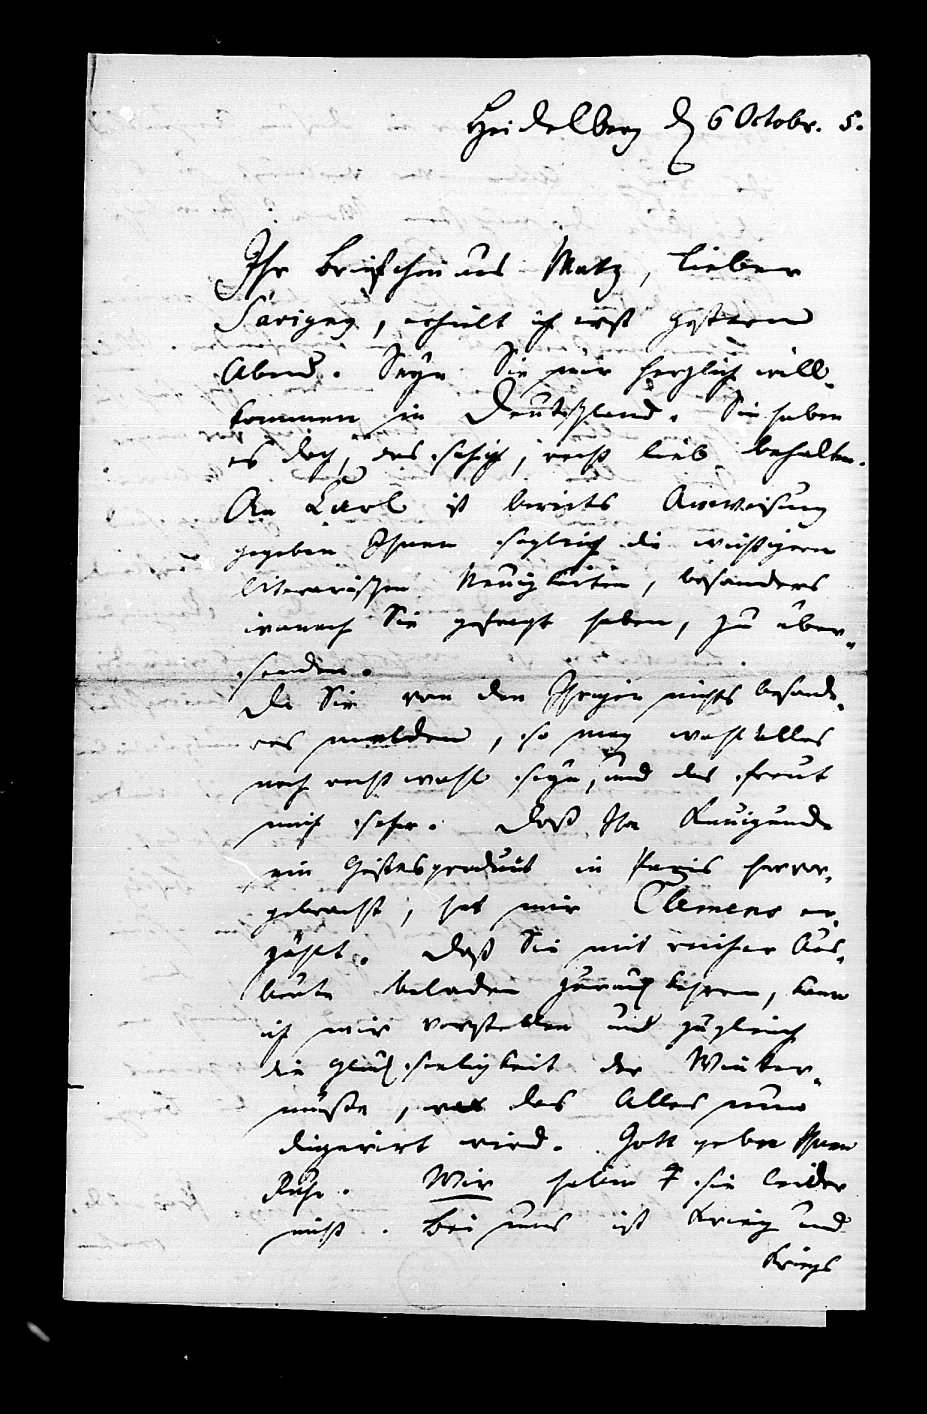 Heidelberg d 6 Octobr. 5.
Ihr Briefchen aus Metz, lieber
Savigny, erhielt ich erst gestern
Abend. Seyn Sie mir herzlich will-
kommen in Deutschland. Sie haben
es doch, das hoff ich, recht lieb behalten.
An Karl ist bereits Anweisung
gegeben Ihnen sogleich die wichtigern
literarischen Neuigkeiten, besonders
wonach Sie gefragt haben, zu über-
senden.
Da Sie von den Ihrigen nichts besonde-
res melden, so mag wohl alles
noch recht wohl seyn, und das freut
mich sehr. Daß Ihre Kunigunde
ein Geistesproduct in Paris hervor-
gebracht, hat mir Clemens er-
zählt. Daß Sie mit reicher Aus-
beute beladen zurück kehren, kann
ich mir vorstellen und zugleich
die Glückseeligkeit der Winter-
muße, wo das Alles nun
digerirt wird. Gott gebe Ihnen
Ruhe. Wir haben sie leider
nicht. Bei uns ist Krieg und
Kriegs